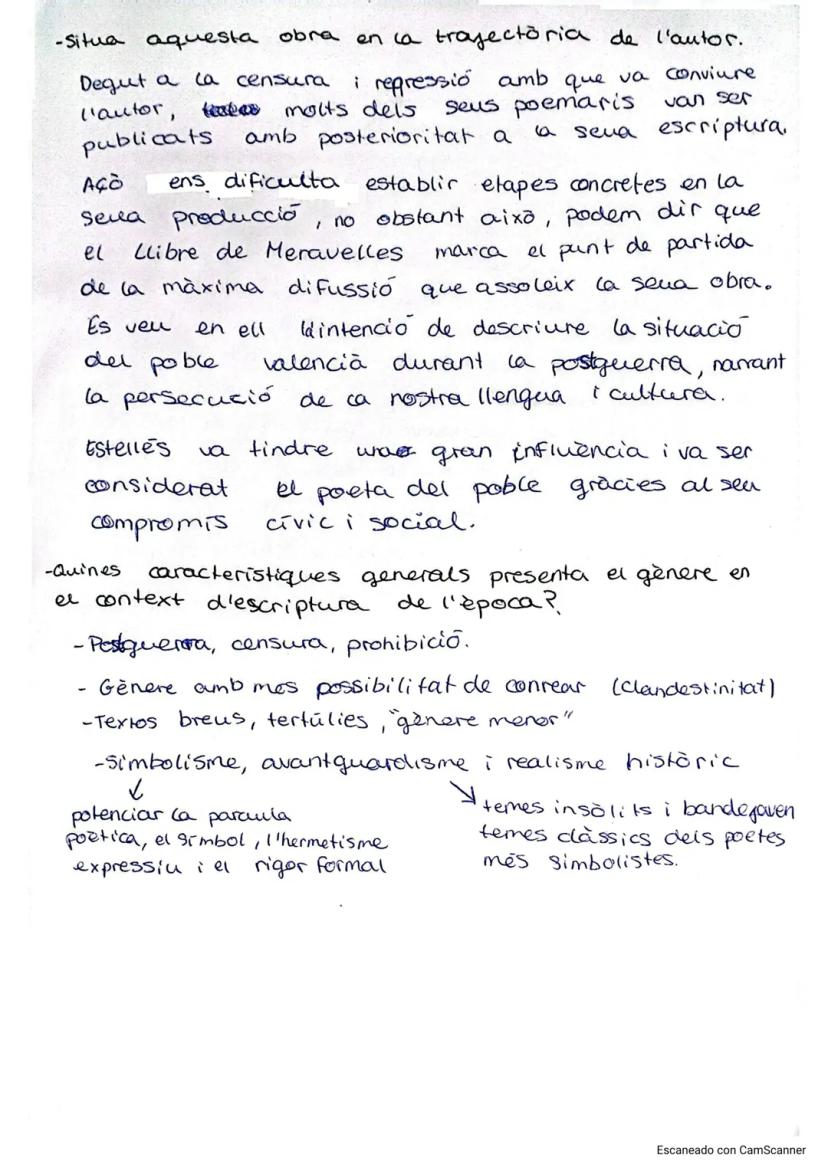 -Situa aquesta obra en la trajectòria de l'autor.
Degut a la censura i repressió amb que va conviure
l'autor, molts dels seus poemaris van ser
publicats amb posterioritat a la seua escriptura.
Açò ens dificulta establir etapes concretes en la
seua producció, no obstant això, podem dir que
el Llibre de Meravelles marca el punt de partida
de la màxima difussió que assoleix la seua obra.
Es veu en ell la intenció de descriure la situació
del poble valencià durant la postguerra, narrant
la persecució de ca nostra llengua i cultura.
Estellés va tindre gran influència i va ser
considerat el poeta del poble gràcies al seu
compromís cívic i social.
-Quines característiques generals presenta el gènere en
el context d'escriptura de l'època?
- Postguerra, censura, prohibició.
- Gènere amb mes possibilitat de conrear (clandestinitat)
-Textos breus, tertúlies, "gènere menor"
-Simbolisme, avantguardisme i realisme històric
↓ ↘
potenciar la paraula
poètica, el símbol, l'hermetisme
expressiu i el rigor formal
temes insòlits i bandejaven
temes clàssics dels poetes
més simbolistes.
Escaneado con CamScanner